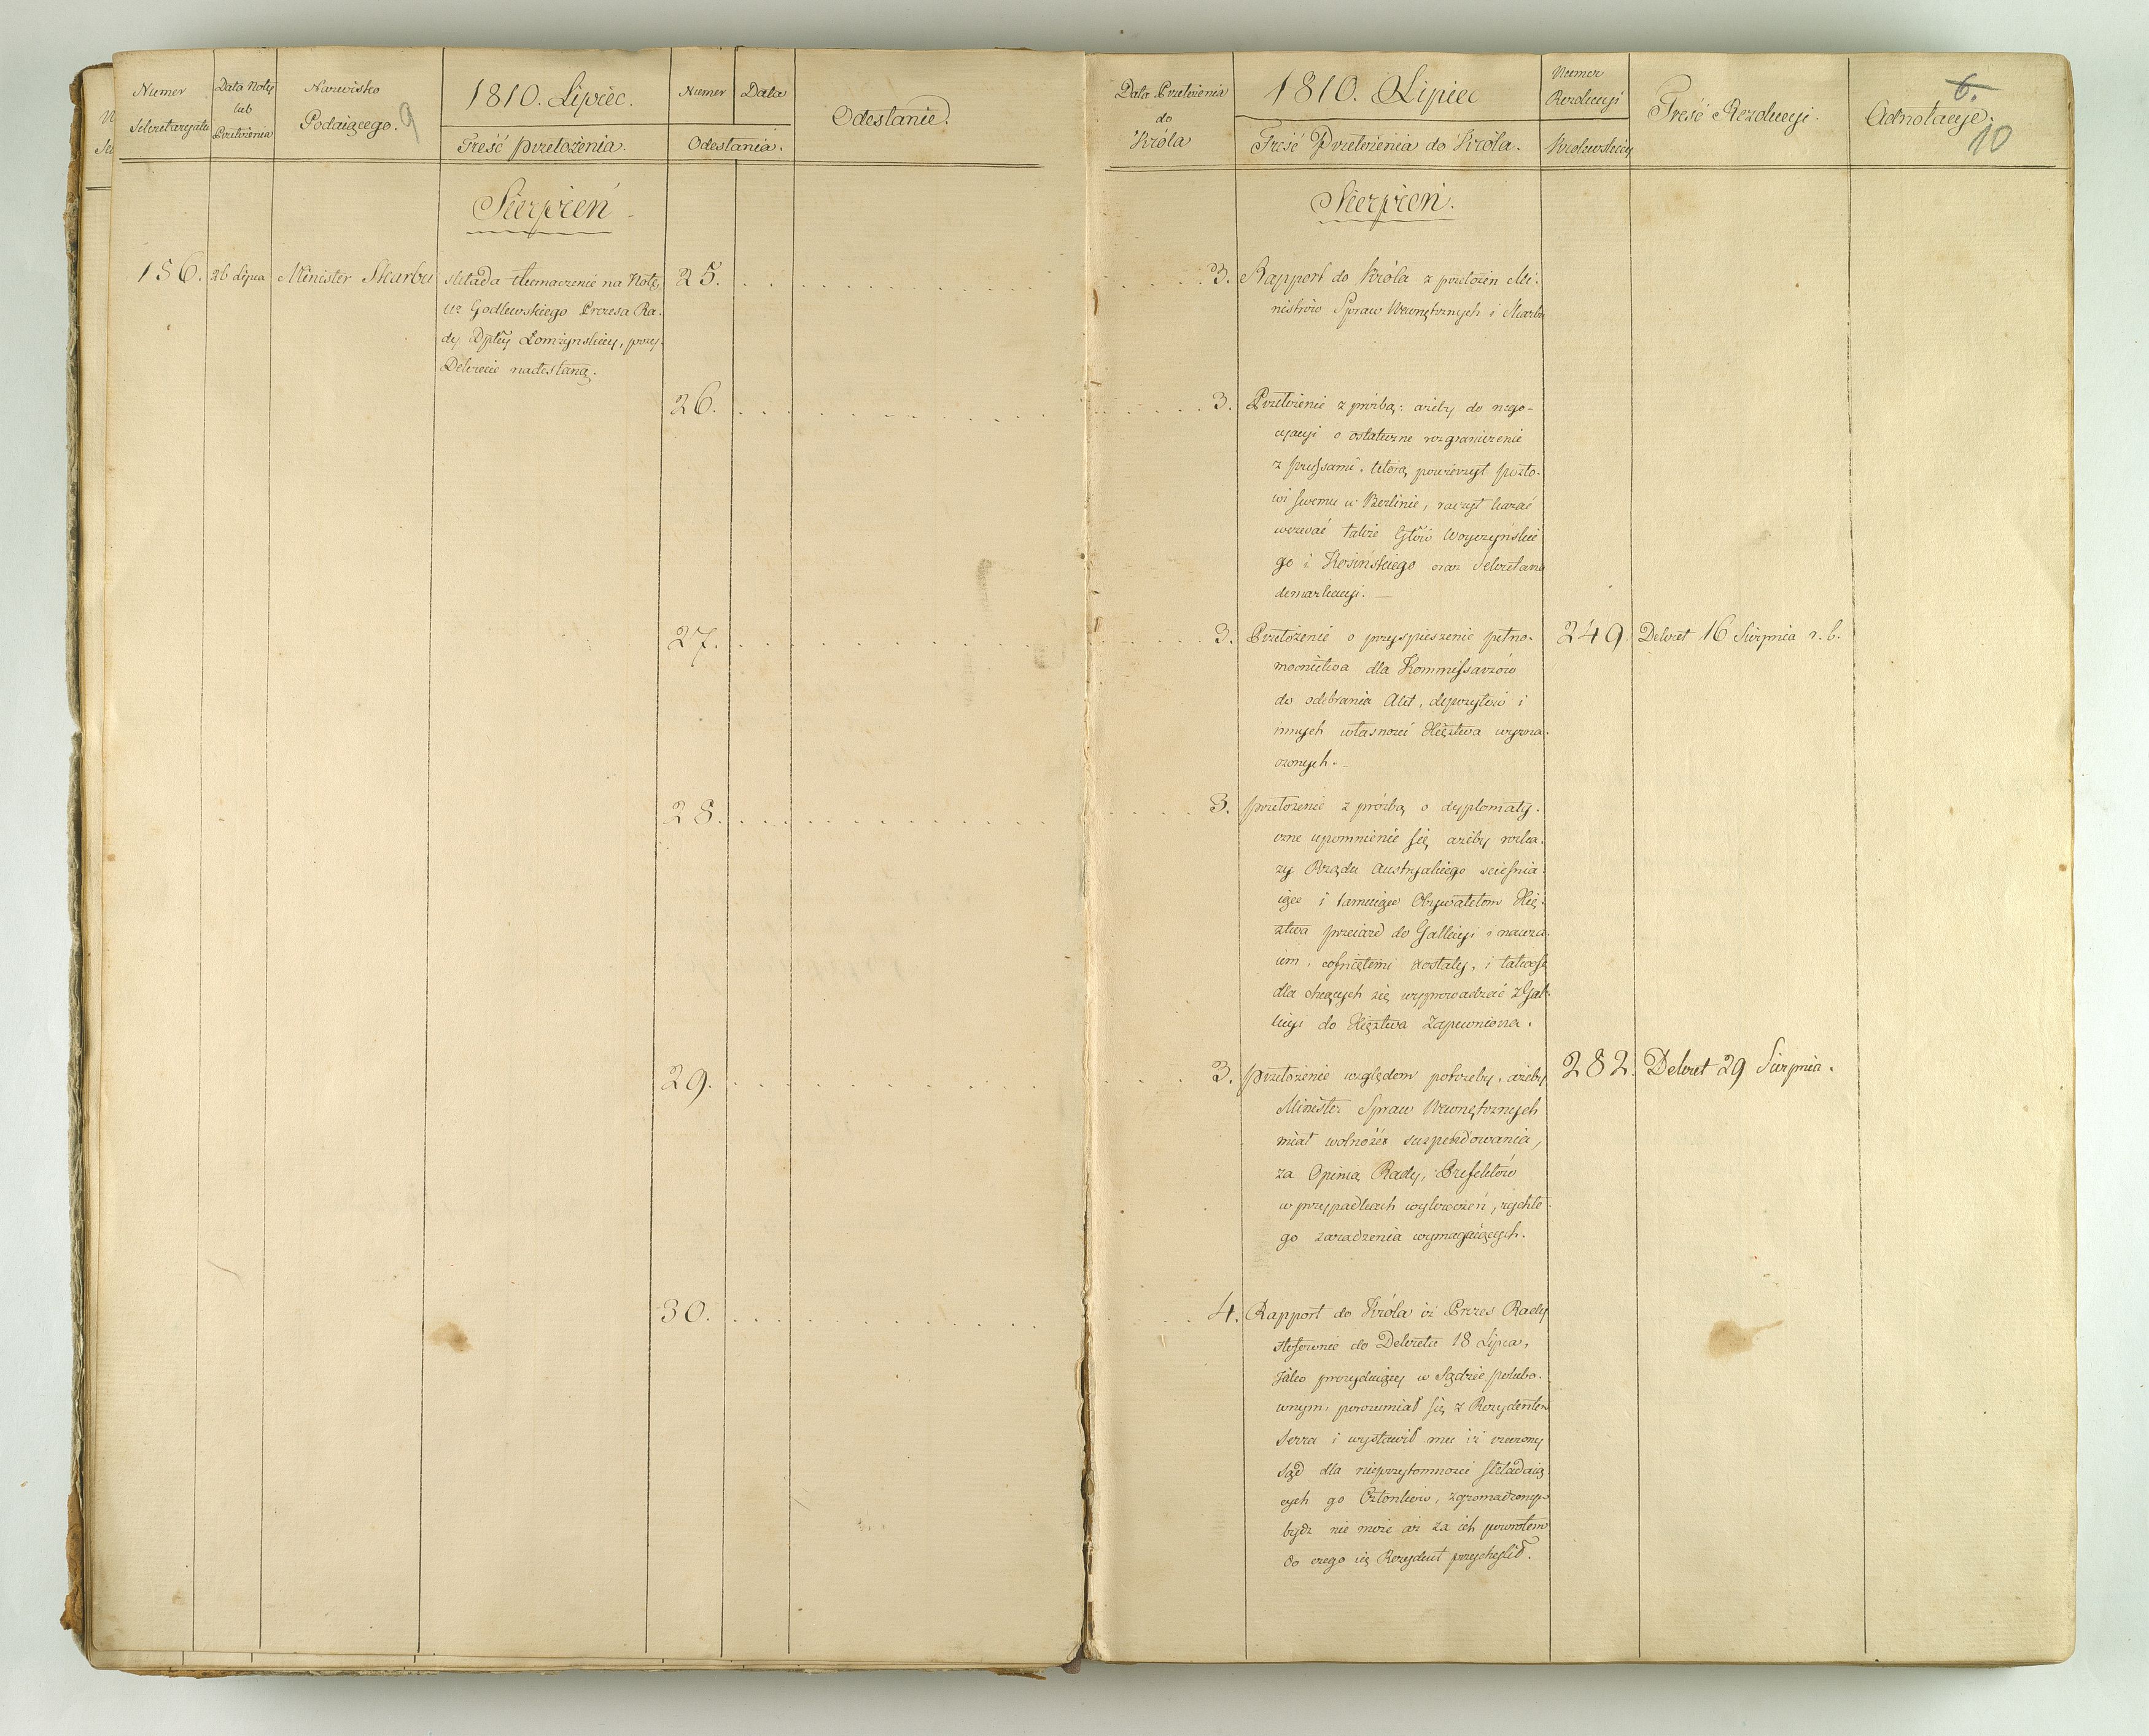 Numer
Sekretaryatu
Data Noty
lub
Przełożenia
Nazwisko
Podaiącego.
9
1810. Lipiec.
Treść przełożenia.
Numer
Data
Odesłania.
Odesłanie.
Sierpień
156.
26 Lipca
Minister Skarbu
składa tłumaczenie na Notę
Godlewskiego Prezesa Ra-
dy Dptey Łomżynskiey, przy
Dekrecie nadesłaną.
25.
26.
27.
28.
29.
30.
Data Przełożenia
do
Króla
1810. Lipiec
Treść Przełożenia do Króla.
Numer
Rezolucyi
Królewskiey
Treść Rezolucyi.
Adnotacye.
6.
10
Sierpień.
3. Rapport do Króla z przełożeń Mi-
nistrów Spraw Wewnętrznych i Skarbu
3. Przełożenie z prózbą: ażeby do nego-
cyacyi o ostateczne rozgraniczenie
z prussami, którą powierzył posło-
wi swemu w Berlinie, raczył kazać
wezwać także Woyczyńskie
go i Kosińskiego oraz Sekretarza
demarkacyi.
3. Przełożenie o przyspieszenie pełno-
mocnictwa dla Kommissarzów
do odebrania Akt, depozytów i
innych własności Xięztwa wyzna-
czonych.
249. Dekret 16 Sierpnia r. b.
3. przełożenie z próźbą o dyplomaty-
czne upomnienie się ażeby rozka-
zy Rządu Austryakiego scieśnia-
iące i tamuiące Obywatelom Xię-
ztwa przeiazd do Gallicyi i nawza-
iem, cofniętemi zostały, i
dla chcących się wyprowadzać z Gal-
licyi do Xięztwa zapewniona.
3. przełożenie względem potrzeby, ażeby
Minister Spraw Wewnętrznych
miał wolność suspendowania,
za Opinią Rady, Prefektów
w przypadkach wykroczeń, rychłe-
go zaradzenia wymagaiących.
282. Dekret 29 Sierpnia.
4. Rapport do Króla iż Prezes Rady
stosownie do Dekretu 18 Lipca,
Jako prezyduiący w Sądzie polubo-
wnym, porozumiał się z Rezydentem
Serra i wystawił mu iż rzeczony
Sąd dla nieprzytomności składaią
cych go Członków, zgromadzonym
bydź nie może aż za ich powrotem
do czego się Rezydent przychylił.